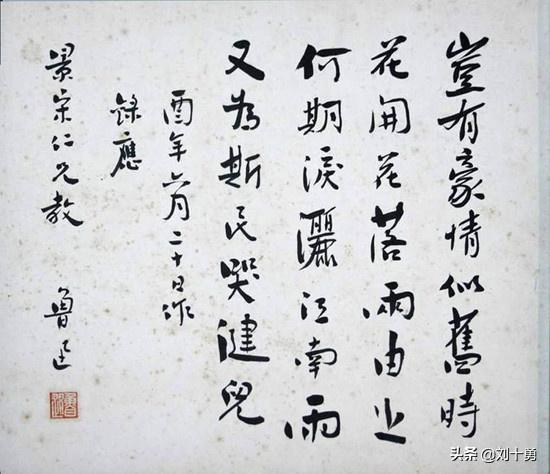 豈有豪情似舊時
花開花落兩由之
何期淚灑江南雨
又為斯民哭健兒
酉年六月二十日作
錄應
景宋仁兄教
魯迅
魯迅
头条 @刘十勇